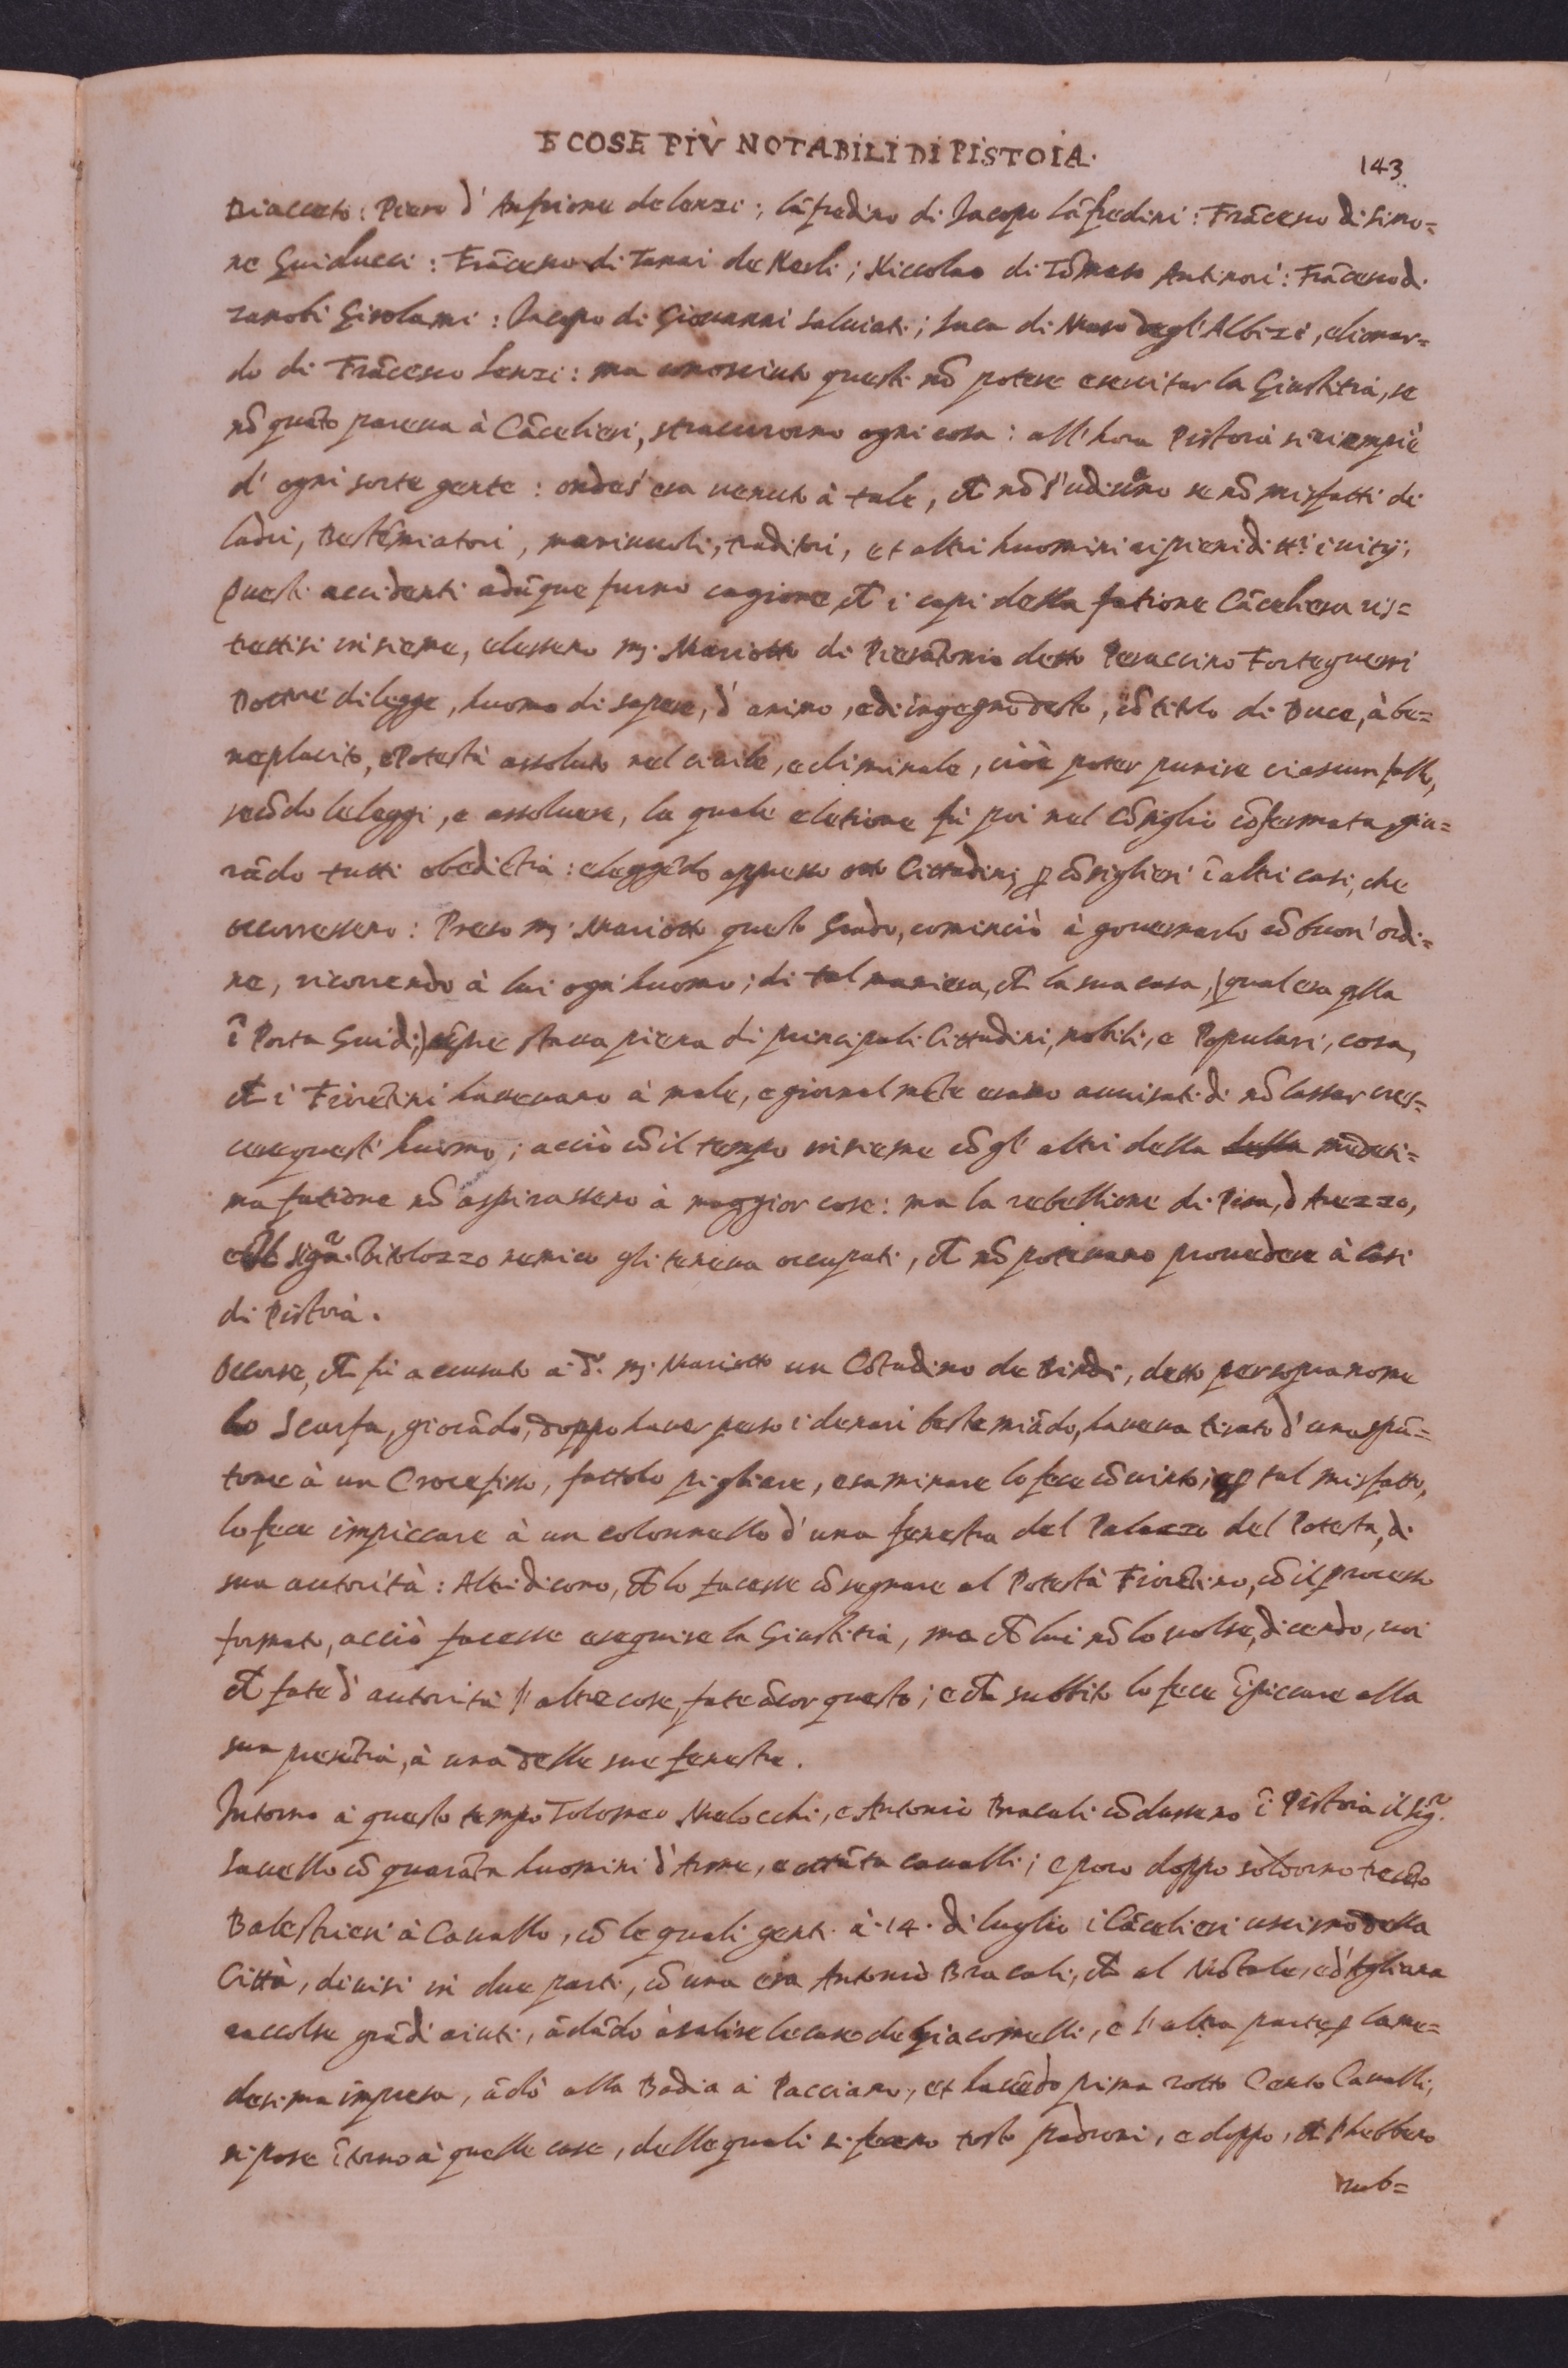 E COSE PIÙ NOTABILI DI PISTOIA.
143
Diacceto: Piero d' Anfrione de lenzi; Lāfredino di Jacopo Lāfredini: Frācesco di Simo=
ne Guiducci: Frācesco di Tanai de Nerli; Niccolao di Tōmaso Antinori: Frācesco di
zanobi Girolami: Jacopo di Giouanni Saluiati; Luca di Maso degl'Albizi, elionar=
do di Frācesco Lenzi: ma conosciuto questi nō potere esercitar la Giustitia, se
nō quāto pareua à Cācelieri, stracurorno ogni cosa: all'hora Pistoia si riempiè
d' ogni sorte gente: ond'es' era uenuto à tale, ch nō s'udiuano se nō misfatti di
ladri, Bestēmiatori, mariuuoli, traditori, et altri huomini ripieni di tti i uitij;
Questi accidenti adūque furno cagione, ch i capi della fatione Cāceliera ris=
trettisi insieme, elessero mj. Mariotto di Pierātonio detto Peraccino Forteguerri
Dottore di legge, huomo di sapere, d' animo, e di ingegno desto, cō titolo di Duce, à be=
neplacito, e Potestà assoluta nel ciuile, e criminale, cioè poter punire ciascun fallo,
secōdo le leggi, e assoluere, la quale eletione fù poi nel Cōsiglio cōfermata, giu=
rādo tutti obediētia: eleggēdo appresso otto Cittadini p cōsiglieri ī altri casi, che
occorressero: Preso mj. Mariotto questo Grado, cominciò à gouernarlo cō buon' ordi=
ne, ricorrendo à lui ogn'huomo; di tal maniera, ch la sua casa, (qual era qlla
ī Porta Guidi,) sēpre staua piena di principali Cittadini, nobili, e Popolari, cosa,
ch i Fiorētini haueuano à male, e giornalmēte erano auuisati di nō lassar cres=
cere quest' huomo; acciò cō il tempo insieme cō gl' altri della della medesi=
ma fatione nō aspirassero à maggior cose: ma la rebellione di Pisa, d' Arezzo,
el sigr. Vitolozzo nemico gli teneua occupati, ch nō poteuano prouedere à Casi
di Pistoia.
Occorse, ch fù accusato à dº. mj. Mariotto un Cōtadino de Bindi, detto per sopranome
lo Scarfa, giocādo, doppo hauer perso i denari bestemiādo, haueua tirato d' uno spū=
tone à un Crocefisso, fattolo pigliare, esaminare lo fece cōuinto; e p tal misfatto,
lo fece impiccare à un colonnello d' una fenestra del Palazzo del Potestà, di
sua autorità: Altri dicono, ch lo facesse cōsegnare al Potestà Fiorētino, cō il processo
formato, acciò facesse eseguire la Giustitia, ma ch lui nō lo uolse, dicendo, uoi
ch fate d' autorità l' altre cose, fate ācor questo; e ch subbito lo fece īpiccare alla
sua presētia, à una delle sue fenestre.
Intorno à questo tempo Tolomeo Melocchi, e Antonio Bracali cōdussero ī Pistoia il sigr.
Sauello cō quarāta huomini d' Arme, e ottāta caualli; e poco doppo sòldorno trecēto
Balestrieri à Cauallo, cō le quali genti à 14. di luglio i Cācelieri uscirno della
Città, diuisi in due parti, cō una era Antonio Bracali, ch al Mōtale, e d'Agliana
raccolse grādi aiuti, ādādo à salire le case de Giacomelli, e l' altra parte p la me=
desima impresa, ādò alla Badia à Pacciano, et hauēdo prima rotto Cento Caualli,
si pose ītorno à quelle case, delle quali si fecero tosto padroni, e doppo, ch l'hebbero
rub=